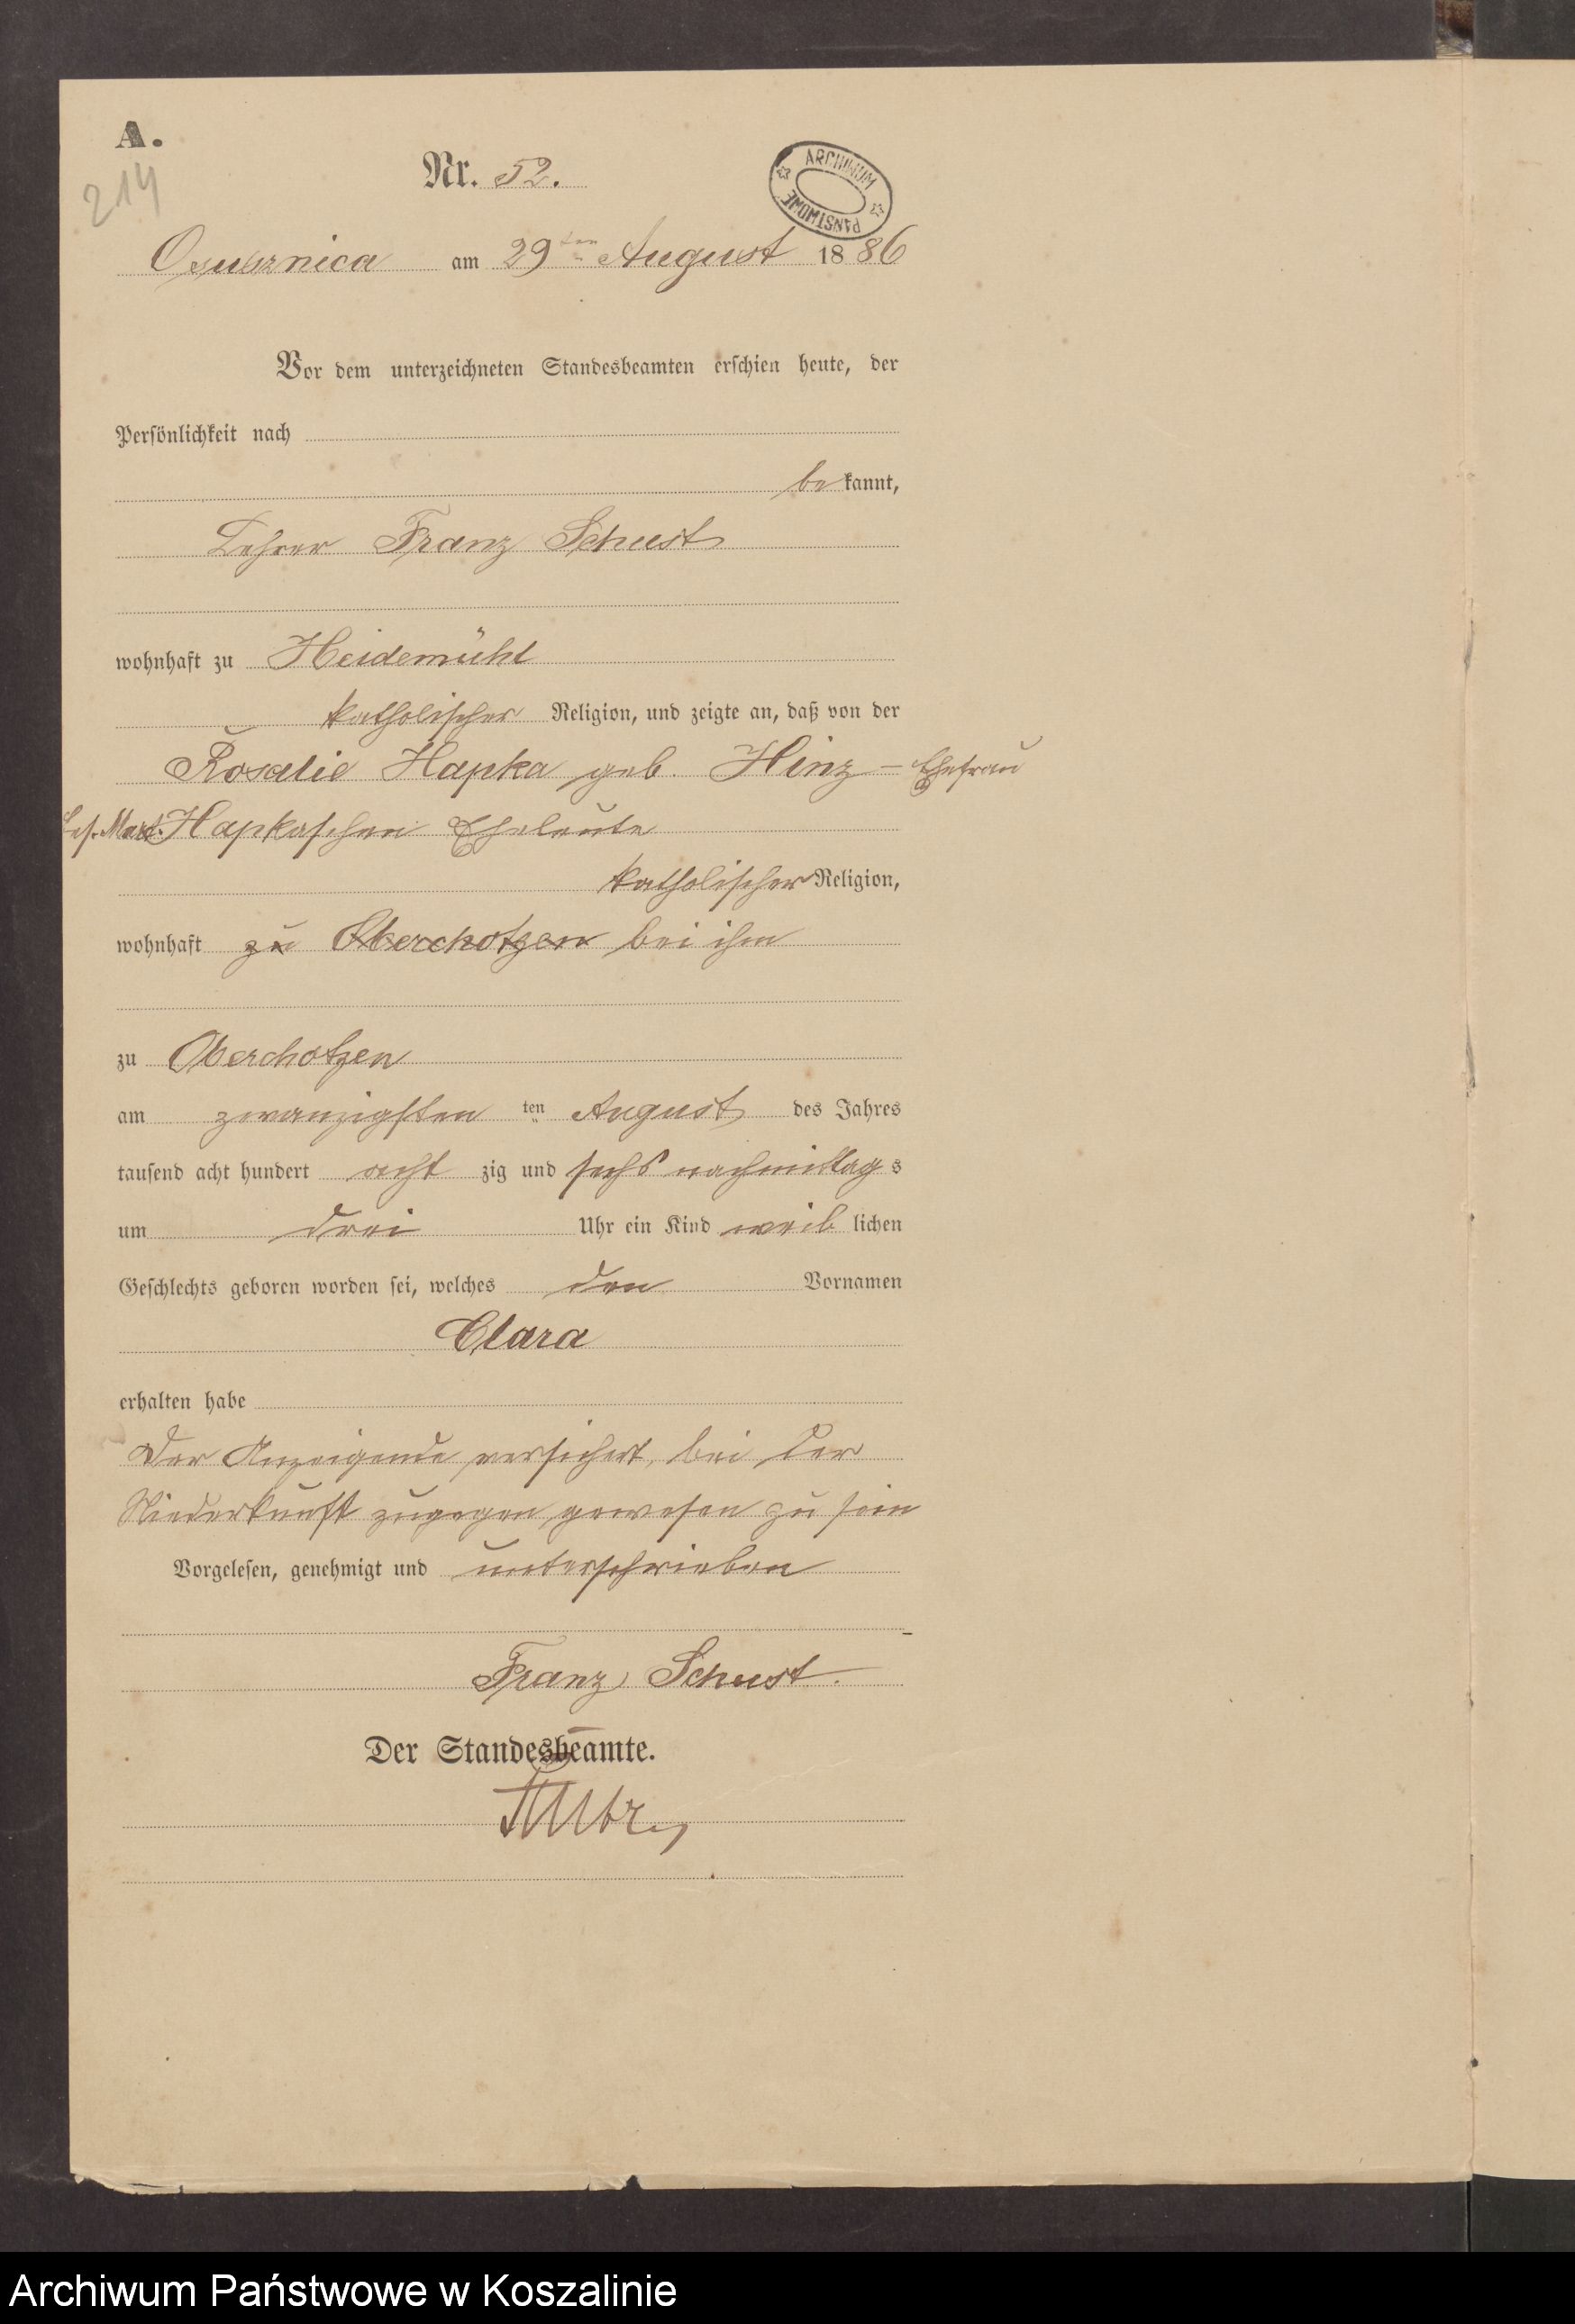 A.
214
Nr. 52.
ARCHIWUM PAŃSTWOWE
am 29ten August 1886
Vor dem unterzeichneten Standesbeamten erschien heute, der
Persönlichkeit nach
bekannt,
Lehrer Franz Schust
wohnhaft zu Heidemühl
katholischer Religion, und zeigte an, daß von der
Rosalie Hapka geb. Hinz - Ehefrau
Mart. Hapkaschen Eheleute
katholischer Religion,
wohnhaft zu Oberchotzen bei ihm
zu Oberchotzen
am zwanzigsten ten August des Jahres
tausend acht hundert achtzig und sechs nachmittags
um drei Uhr ein Kind weiblichen
Geschlechts geboren worden sei, welches den Vornamen
Clara
erhalten habe
Der Anzeigende versichert, bei der
Niederkunft zugegen gewesen zu sein
Vorgelesen, genehmigt und unterschrieben
Franz Schust.
Der Standesbeamte.
Archiwum Państwowe w Koszalinie